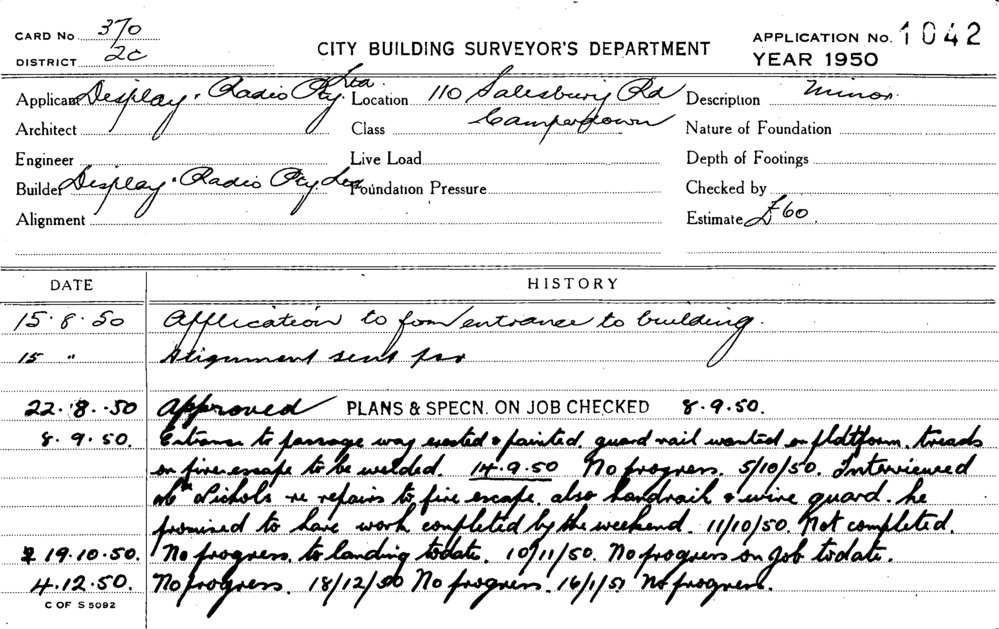 CARD No 370
DISTRICT 2C
CITY BUILDING SURVEYOR'S DEPARTMENT
APPLICATION No. 1042
YEAR 1950
Applicant Display. Radio Pty. Ltd. Location 110 Salesbury Rd Description Minor.
Architect Class Camperdown Nature of Foundation
Engineer Live Load Depth of Footings
Builder Display. Radio Pty. Ltd. Foundation Pressure Checked by
Alignment Estimate £60.
DATE HISTORY
15.8.50 Application to form entrance to building.
15 " Alignment sent for
22.8.50 Approved PLANS & SPECN. ON JOB CHECKED 8.9.50.
8.9.50. Entrance to passage way erected & painted. guard rail wanted on platform. treads
on fire escape to be welded. 14.9.50 No progress. 5/10/50. Interviewed
Mr Nichols re repairs to fire escape. also handrail & wire guard. he
promised to have work completed by the weekend. 11/10/50. Not completed.
19.10.50. No progress. to landing todate. 10/11/50. No progress on Job todate.
4.12.50. No progress. 18/12/50 No progress. 16/1/51 No progress.
C OF S 5092